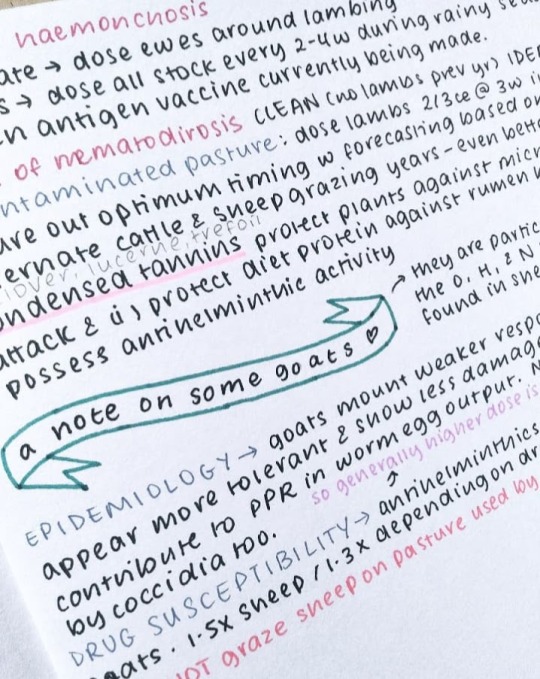 haemonchosis
ate → dose ewes around lambing
s → dose all stock every 2-4w during rainy
en antigen vaccine currently being made.
of nematodirosis CLEAN (no lambs prev yr) IDE
ntaminated pasture: dose lambs 2/3ce @ 3w i
ure out optimum timing w forecasting based o
ernate cattle & sheep grazing years - even bett
lover, lucerne, trefoil
ondensed tannins protect plants against micr
attack & ii) protect diet protein against rumen
possess anthelminthic activity
→ they are partic
the O, H, & N
found in she
a note on some goats ♡
EPIDEMIOLOGY → goats mount weaker resp
appear more tolerant & show less damage
contribute to PPR in worm egg output. N
so generally higher dose is
by coccidia too.
DRUG SUSCEPTIBILITY → anthelminthics
goats. 1.5x sheep / 1.3x depending on dr
NOT graze sheep on pasture used by